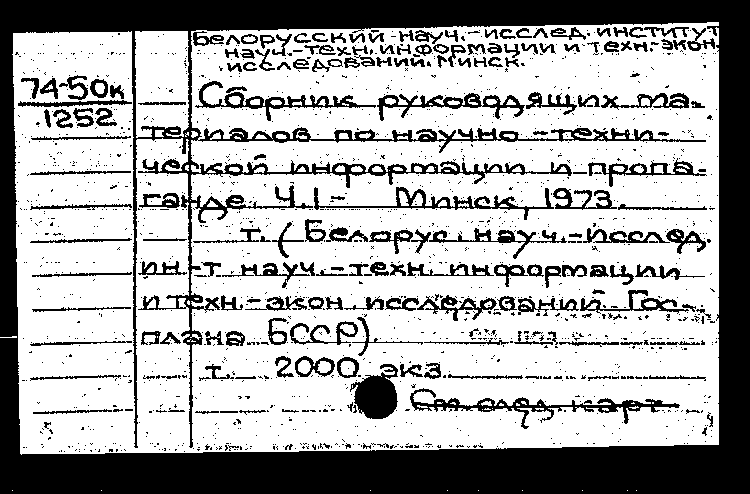 Белорусский науч.-исслед. институт
науч.-техн. информации и техн.-экон.
исследований. Минск.
74-50к
1252
Сборник руководящих ма-
териалов по научно-техни-
ческой информации и пропа-
ганде. Ч.1- Минск, 1973.
т. (Белорус. науч.-исслед.
ин-т науч.-техн. информации
и техн.-экон. исследований Гос-
плана БССР).
т. 2000 экз.
См. след. карт